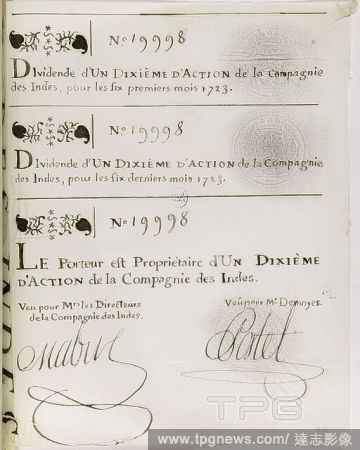 N.º 19998
DIvidende d'UN DIXIÈME D'ACTION de la Compagnie
des Indes, pour les six premiers mois 1723.
N.º 19998
DIvidende d'UN DIXIÈME D'ACTION de la Compagnie
des Indes, pour les six derniers mois 1723.
N.º 19998
LE Porteur est Propriétaire d'UN DIXIÈME
D'ACTION de la Compagnie des Indes.
Veu pour Mrs les Directeurs
de la Compagnie des Indes.
Veu pour Mr Desnoyes.
TPG
www.tpgnews.com/ 達志影像